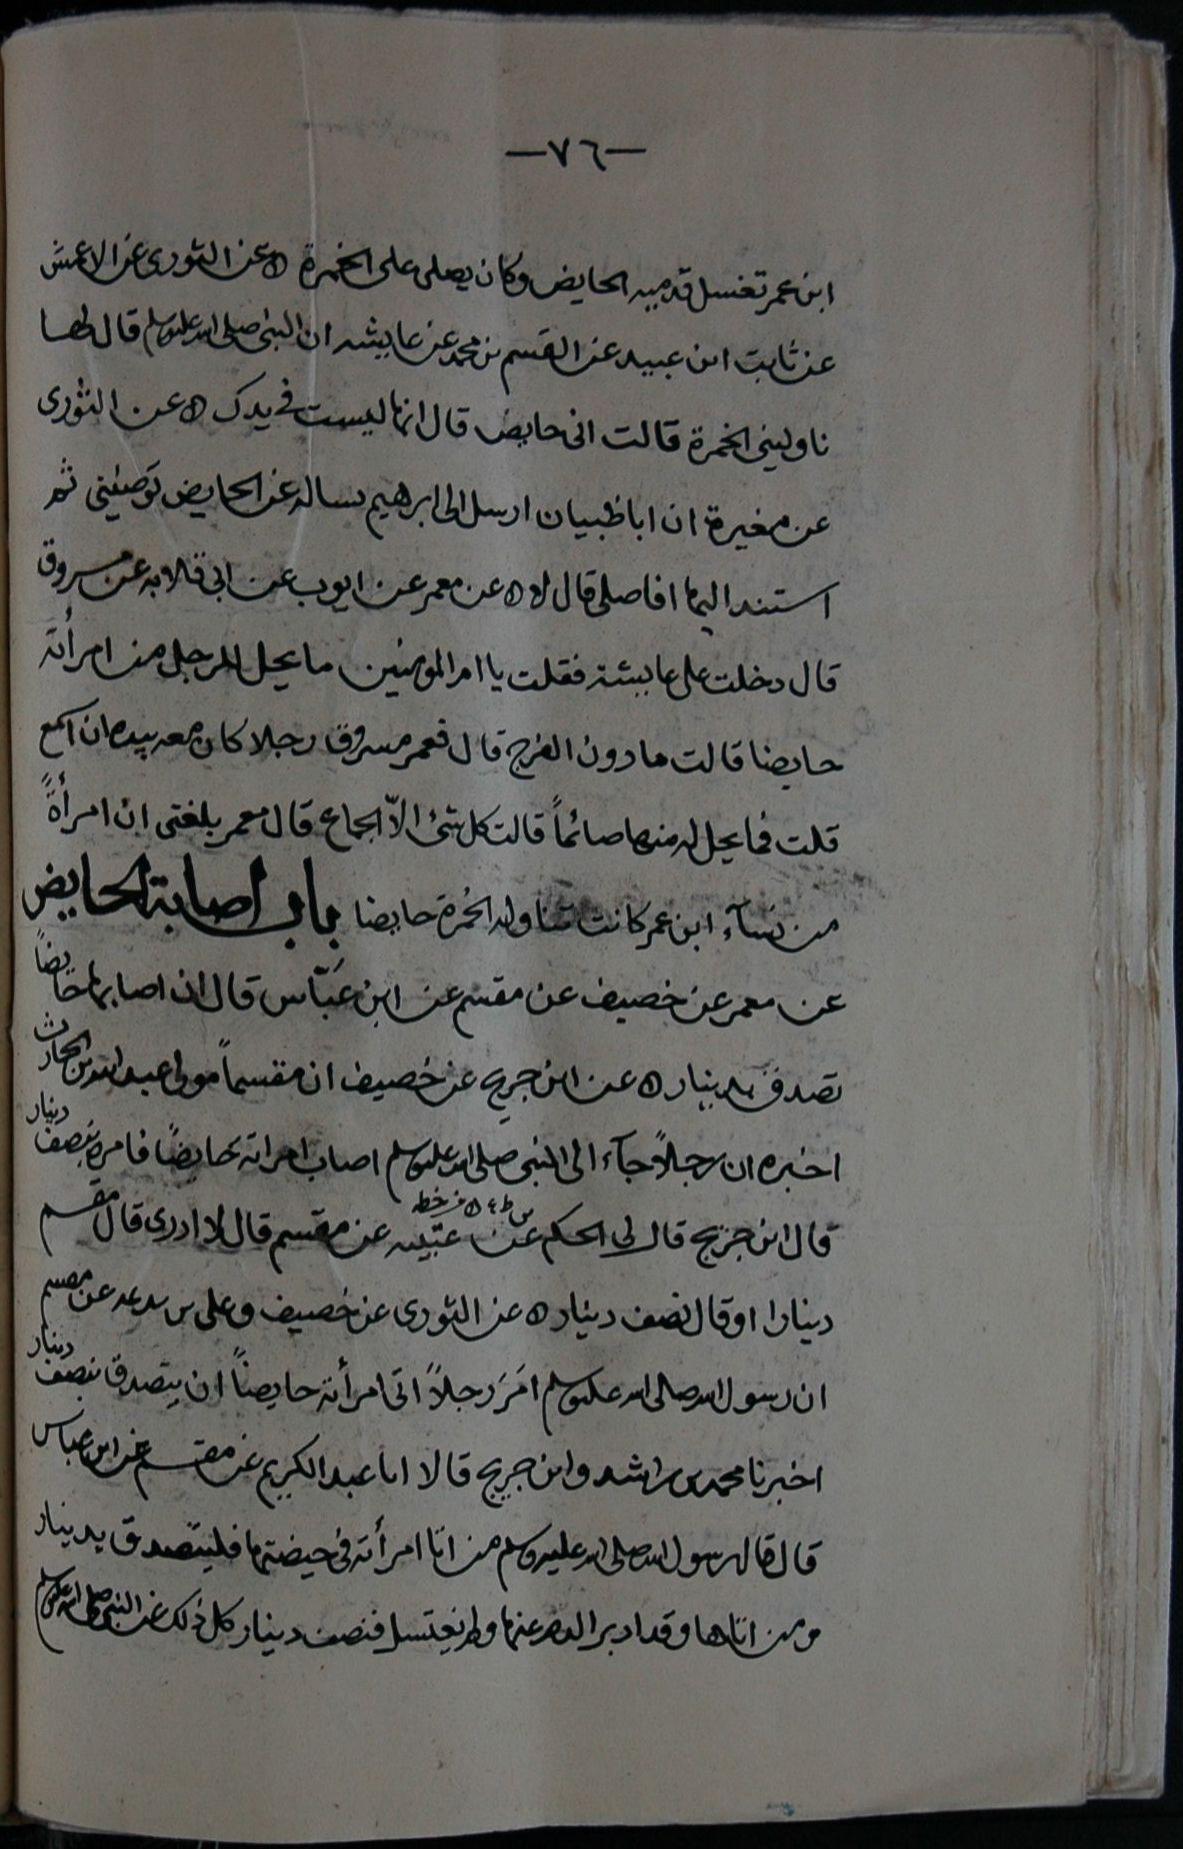 —٧٦—
ابن عمر تغسل قدميه الحايض وكان يصلى على الخمرة ٥ عن الثورى عن الاعمش
عن ثابت ابن عبيد عن القسم بن محمد عن عايشه ان النبى صلى الله عليه وسلم قال لها
ناولينى الخمرة قالت انى حايض قال انها ليست فى يدك ٥ عن الثورى
عن مغيرة ان اباظبيان ارسل الى ابرهيم يساله عن الحايض توضينى ثم
استند اليها افاصلى قال لا ٥ عن معمر عن ايوب عن ابى قلابه عن مسروق
قال دخلت على عايشة فقلت يا ام المومنين ما يحل للرجل من امرأته
حايضا قالت ما دون الفرج قال فغمز مسروق رجلا كان معه بيده ان اسمع
قلت فما يحل له منها صائماً قالت كل شئ الاّ الجماع قال معمر بلغنى ان امرأةً
من نسآء ابن عمر كانت تناوله الخمرة حايضا باب اصابة الحايض
عن معمر عن خصيف عن مقسم عن ابن عبّاس قال ان اصابها حايضاً
تصدق بدينار ٥ عن ابن جريج عن خصيف ان مقسماً مولى عبد الله بن الحارث
اخبره ان رجلاً جآء الى النبى صلى الله عليه وسلم اصاب امراته حايضاً فامره بنصف دينار
قال ابن جريج قال لى الحكم عن عتيبه عن مقسم قال لا ادرى قال مقسم
دينارا او قال نصف دينار ٥ عن الثورى عن خصيف وعلى بن بذيمه عن مقسم
ان رسول الله صلى الله عليه وسلم امَرَ رجلاً اتى امرأته حايضاً ان يتصدق بنصف دينار
اخبرنا محمد بن راشد وابن جريج قالا انا عبد الكريم عن مقسم عن ابن عباس
قال قال رسول الله صلى الله عليه وسلم من اتا امرأته فى حيضتها فليتصدق بدينار
ومن اتاها وقد ادبر الدم عنها ولم يغتسل فنصف دينار كل ذلك عن النبى صلى الله عليه وسلم